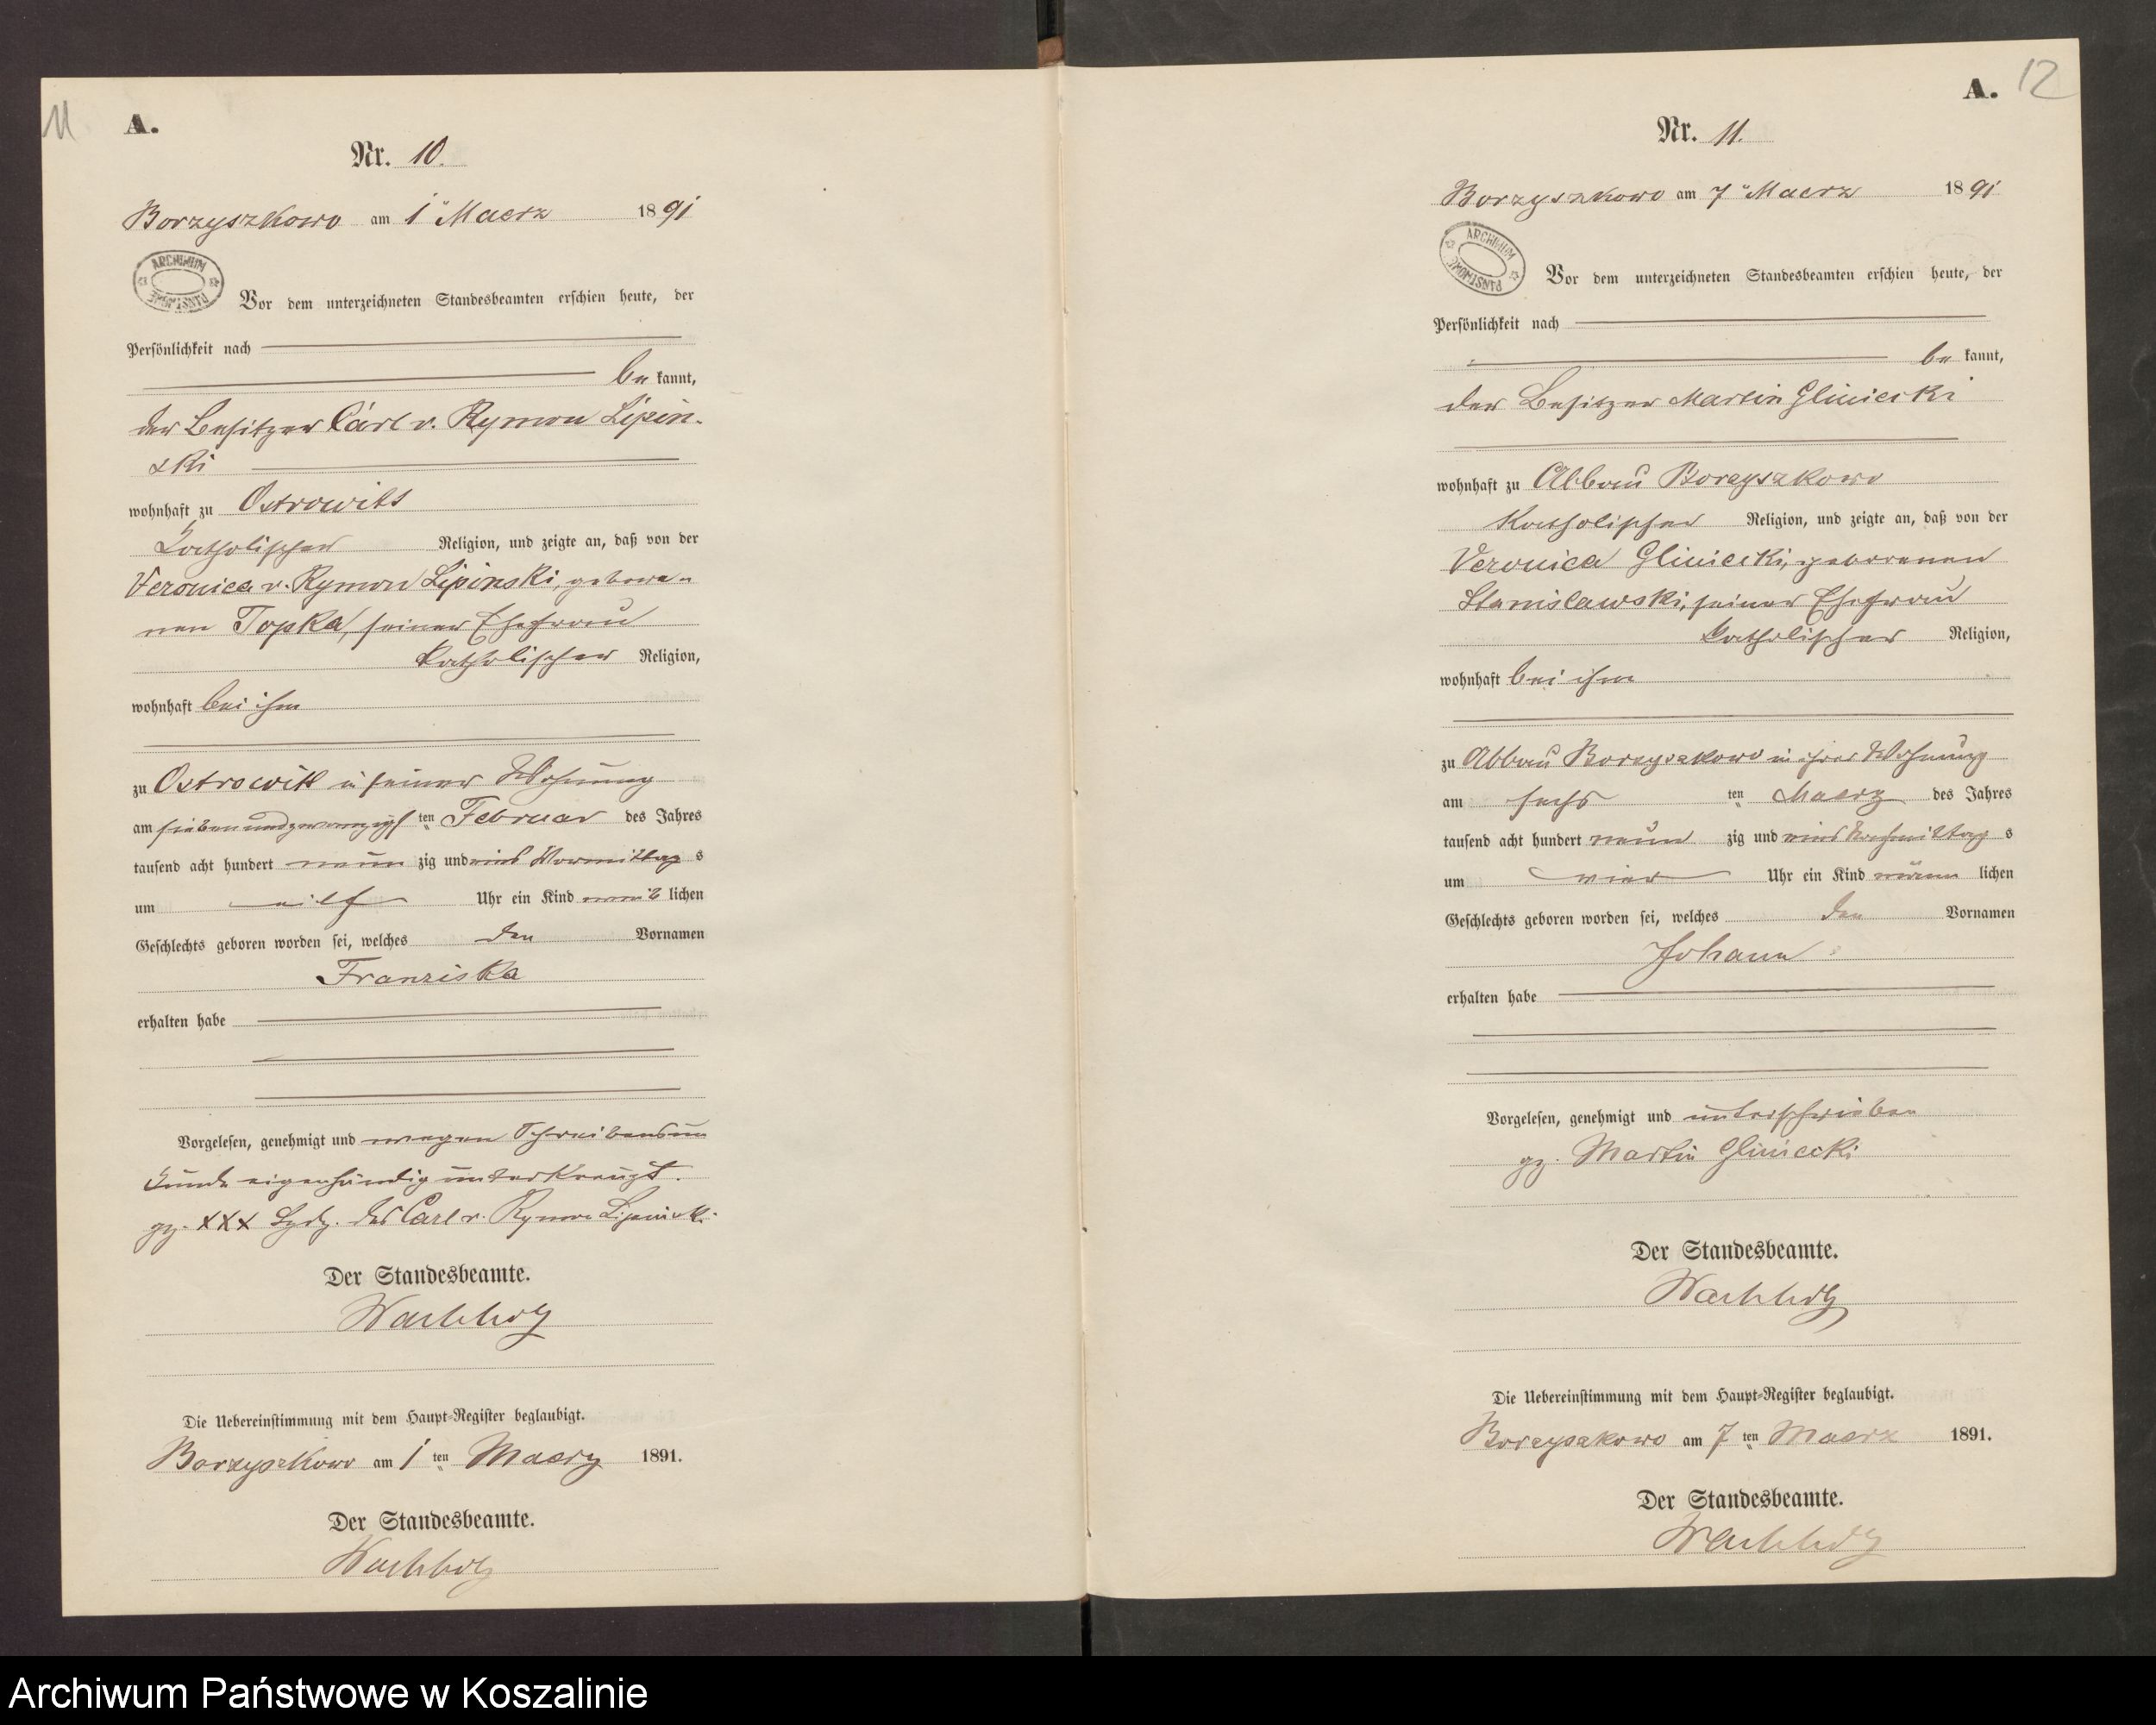 11
A.
Nr. 10.
Borzyszkowo am 1ᵗ Maerz 1891
ARCHIWUM PAŃSTWOWE
Vor dem unterzeichneten Standesbeamten erschien heute, der
Persönlichkeit nach
be kannt,
der Besitzer Carl v. Rymon Lipin-
ski
wohnhaft zu Ostrowitt
katholischer Religion, und zeigte an, daß von der
Veronica v. Rymon Lipinski, gebore-
nen Topka, seiner Ehefrau
katholischer Religion,
wohnhaft bei ihm
zu Ostrowitt in seiner Wohnung
am siebenundzwanzigsten Februar des Jahres
tausend acht hundert neun zig und eins Vormittag s
um eilf Uhr ein Kind weib lichen
Geschlechts geboren worden sei, welches den Vornamen
Franziska
erhalten habe
Vorgelesen, genehmigt und wegen Schreibensun
kunde eigenhändig unterkreuzt.
gz. XXX Hdz. des Carl v. Rymon Lipinski.
Der Standesbeamte.
Wachholz
Die Uebereinstimmung mit dem Haupt-Register beglaubigt.
Borzyszkowo am 1 ten Maerz 1891.
Der Standesbeamte.
Wachholz
A. 12
Nr. 11.
Borzyszkowo am 7ᵗ Maerz 1891
ARCHIWUM PAŃSTWOWE
Vor dem unterzeichneten Standesbeamten erschien heute, der
Persönlichkeit nach
be kannt,
der Besitzer Martin Gliniecki
wohnhaft zu Abbau Borzyszkowo
katholischer Religion, und zeigte an, daß von der
Veronica Gliniecki, geborenen
Stanislawski, seiner Ehefrau
katholischer Religion,
wohnhaft bei ihm
zu Abbau Borzyszkowo in ihrer Wohnung
am sechs ten Maerz des Jahres
tausend acht hundert neun zig und eins Nachmittag s
um vier Uhr ein Kind männ lichen
Geschlechts geboren worden sei, welches den Vornamen
Johann
erhalten habe
Vorgelesen, genehmigt und unterschrieben
gz. Martin Gliniecki
Der Standesbeamte.
Wachholz
Die Uebereinstimmung mit dem Haupt-Register beglaubigt.
Borzyszkowo am 7 ten Maerz 1891.
Der Standesbeamte.
Wachholz
Archiwum Państwowe w Koszalinie